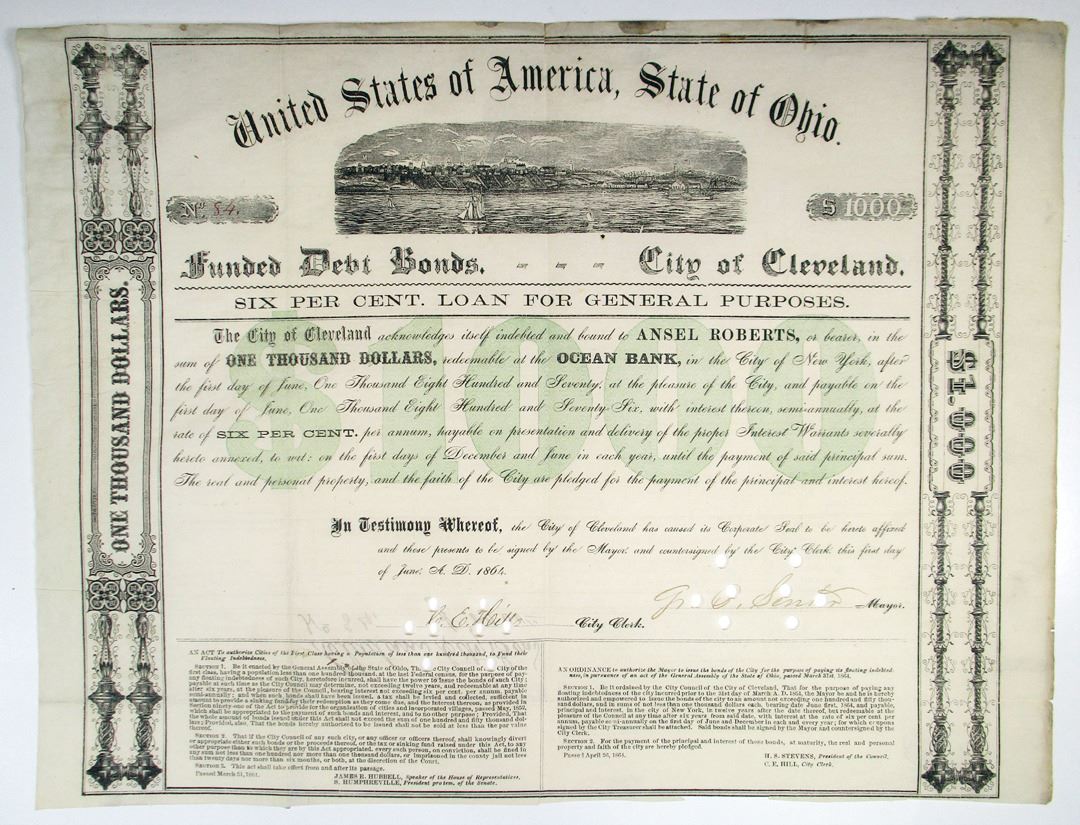 United States of America, State of Ohio.
No. 84.
$ 1000
Funded Debt Bonds. City of Cleveland.
SIX PER CENT. LOAN FOR GENERAL PURPOSES.
$1000
The City of Cleveland acknowledges itself indebted and bound to ANSEL ROBERTS, or bearer, in the
sum of ONE THOUSAND DOLLARS, redeemable at the OCEAN BANK, in the City of New York, after
the first day of June, One Thousand Eight Hundred and Seventy, at the pleasure of the City, and payable on the
first day of June, One Thousand Eight Hundred and Seventy-Six, with interest thereon, semi-annually, at the
rate of SIX PER CENT. per annum, payable on presentation and delivery of the proper Interest Warrants severally
hereto annexed, to wit: on the first days of December and June in each year, until the payment of said principal sum.
The real and personal property, and the faith of the City are pledged for the payment of the principal and interest hereof.
In Testimony Whereof, the City of Cleveland has caused its Corporate Seal to be hereto affixed
and these presents to be signed by the Mayor, and countersigned by the City Clerk, this first day
of June, A. D. 1864.
Mayor.
C. E. Hill City Clerk.
ONE THOUSAND DOLLARS.
$1.000
AN ACT To authorize Cities of the First Class having a Population of less than one hundred thousand, to Fund their
Floating Indebtedness.
SECTION 1. Be it enacted by the General Assembly of the State of Ohio, That the City Council of any City of the
first class, having a population less than one hundred thousand, at the last Federal census, for the purpose of pay-
ing floating indebtedness of such City, heretofore incurred, shall have the power to issue the bonds of such City;
payable at such time as the City Council may determine, not exceeding twelve years, and redeemable at any time
after six years, at the pleasure of the Council, bearing interest not exceeding six per cent. per annum, payable
semi-annually; and when such bonds shall have been issued, a tax shall be levied and collected, sufficient in
amount to provide a sinking fund for their redemption as they come due, and the interest thereon, as provided in
Section ninety-one of the Act to provide for the organization of cities and incorporated villages, passed May, 1852,
which shall be applied to the payment of such bonds and interest, and to no other purpose; Provided, That
the whole amount of bonds issued under this Act shall not exceed the sum of one hundred and fifty thousand dol-
lars; Provided, also, That the bonds hereby authorized to be issued shall not be sold at less than the par value
thereof.
SECTION 2. That if the City Council of any such city, or any officer or officers thereof, shall knowingly divert
or appropriate either such bonds or the proceeds thereof, or the tax or sinking fund raised under this Act, to any
other purpose than to which they are by this Act appropriated, every such person, on conviction, shall be fined in
any sum not less than one hundred nor more than one thousand dollars, or imprisoned in the county jail not less
than twenty days nor more than six months, or both, at the discretion of the Court.
SECTION 3. This act shall take effect from and after its passage.
Passed March 31, 1864.
JAMES R. HUBBELL, Speaker of the House of Representatives.
S. HUMPHREVILLE, President pro tem. of the Senate.
AN ORDINANCE to authorize the Mayor to issue the bonds of the City for the purpose of paying its floating indebted-
ness, in pursuance of an act of the General Assembly of the State of Ohio, passed March 31st, 1864.
SECTION 1. Be it ordained by the City Council of the City of Cleveland, That for the purpose of paying any
floating indebtedness of the city incurred prior to the 1st day of March A. D. 1864, the Mayor be and he is hereby
authorized and empowered to issue the bonds of the city to an amount not exceeding one hundred and fifty thou-
sand dollars, and in sums of not less than one thousand dollars each, bearing date June first, 1864, and payable,
principal and interest, in the city of New York, in twelve years after the date thereof, but redeemable at the
pleasure of the Council at any time after six years from said date, with interest at the rate of six per cent per
annum, payable semi-annually on the first day of June and December in each and every year; for which or upon
signed by the City Treasurer shall be attached. Said bonds shall be signed by the Mayor and countersigned by the
City Clerk.
SECTION 2. For the payment of the principal and interest of those bonds, at maturity, the real and personal
property and faith of the city are hereby pledged.
Passed April 26, 1864.
H. S. STEVENS, President of the Council.
C. E. HILL, City Clerk.